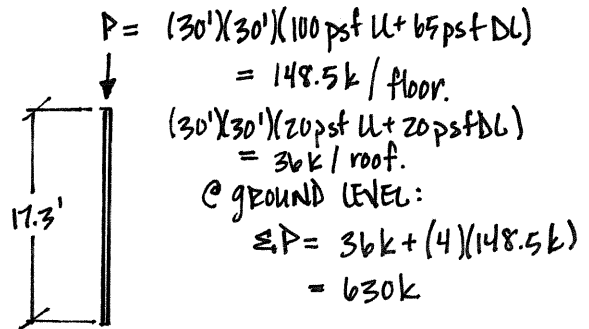 P = (30')(30')(100 psf LL + 65 psf DL)
= 148.5k / floor.
(30')(30')(20psf LL + 20psf DL)
= 36k / roof.
17.3'
@ GROUND LEVEL:
ΣP = 36k + (4)(148.5k)
= 630k